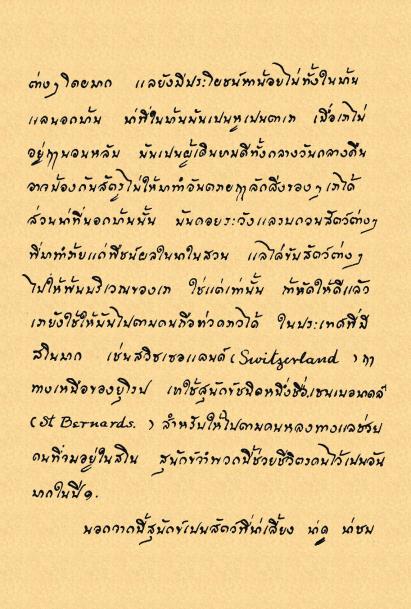 ต่างๆโดยมาก แลยังมีประโยชน์หาน้อยไม่ทั้งในบ้าน
แลนอกบ้าน น่าที่ในบ้านมันเปนหูเปนตาเรา เมื่อเราไม่
อยู่ฤานอนหลับ มันเปนผู้เดินยามดีทั้งกลางวันกลางคืน
อาจป้องกันสัตรูไม่ให้มาทำอันตรายฤาลักสิ่งของๆเราได้
ส่วนน่าที่นอกบ้านนั้น มันคอยระวังแลรบกวนสัตว์ต่างๆ
ที่มาทำภัยแก่พืชน์ผลในนาในสวน แลไล่ขับสัตว์ต่างๆ
ไปให้พ้นบริเวณของเรา ใช่แต่เท่านั้น ถ้าหัดให้ดีแล้ว
เรายังใช้ให้มันไปตามคนถือท่วดกาวได้ ในประเทศที่มี
สโนมาก เช่นสวิซเซอแลนด์ (Switzerland) ฤา
ทางเหนือของยุโรป เขาใช้สุนักข์ชนิดหนึ่งชื่อเซนเบอนาดส์
(St Bernards.) สำหรับให้ไปตามคนหลงทางแลช่วย
คนที่จมอยู่ในสโน สุนักข์จำพวกนี้ช่วยชีวิตรคนไว้เปนอัน
มากในปี ๑.
นอกจากนี้สุนักข์เปนสัตว์ที่น่าเลี้ยง น่าดู น่าชม